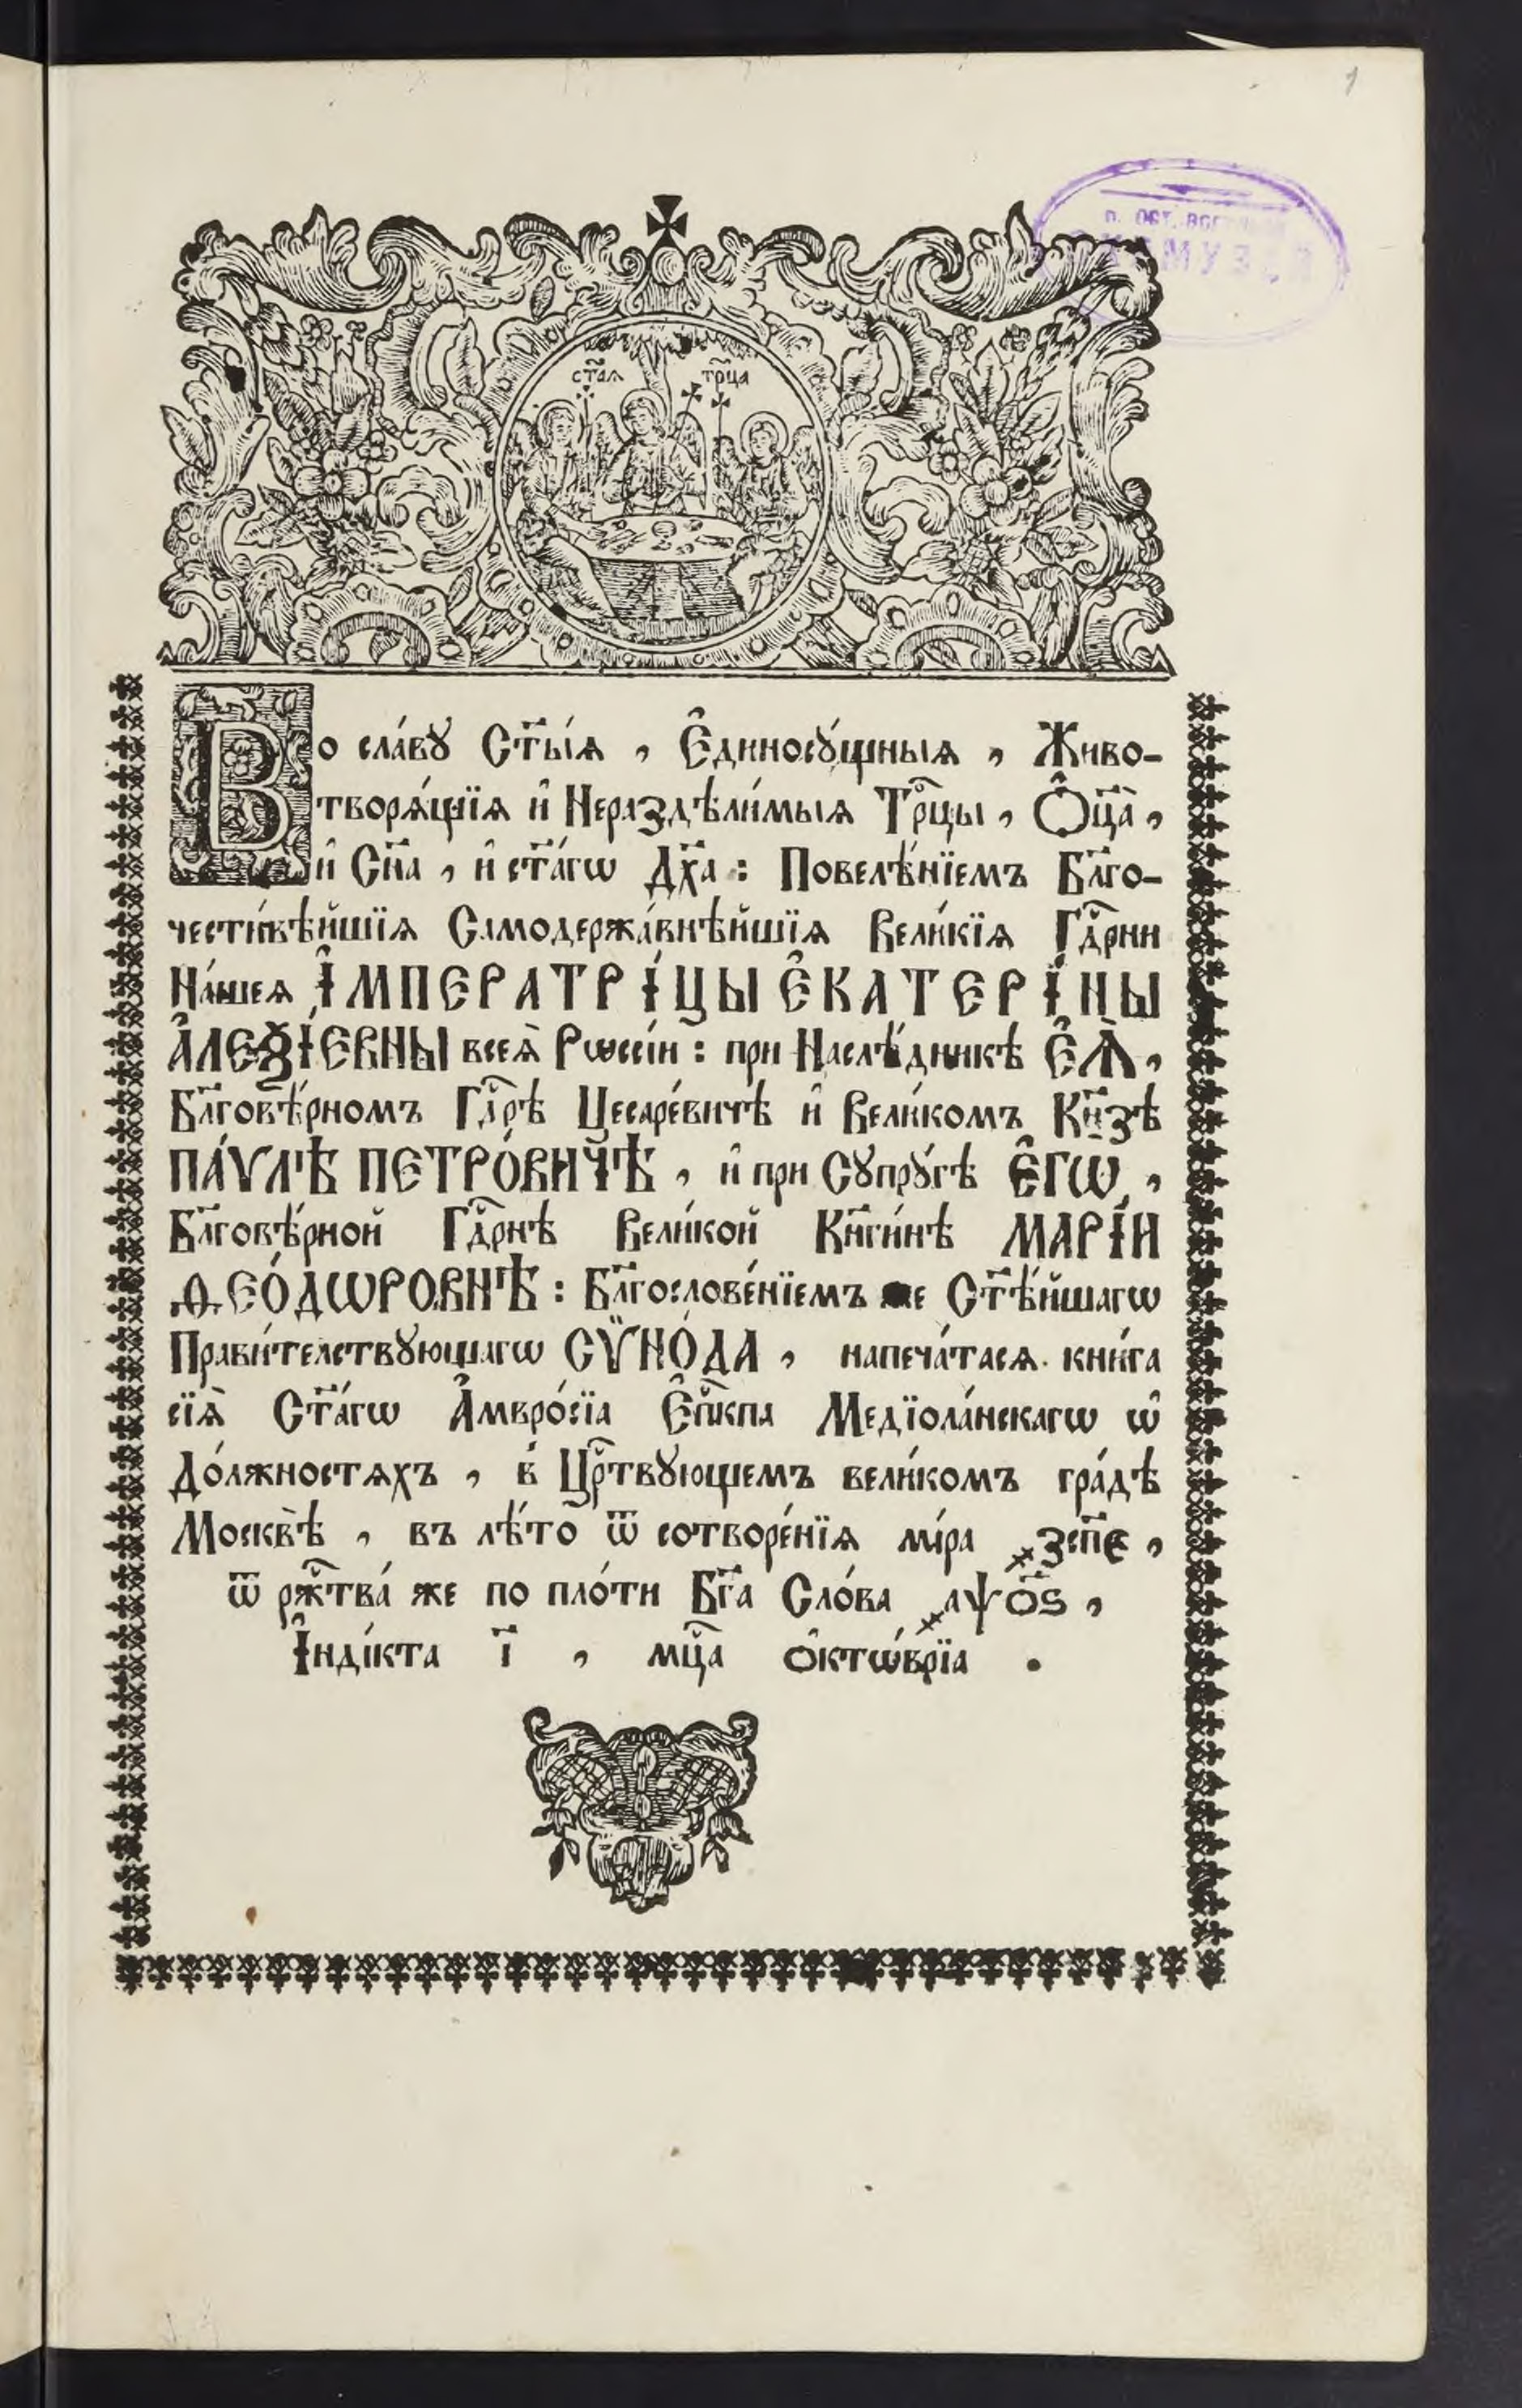 1
п. ост. вог
МУЗЕЙ
ст҃аѧ трⷪ҇ца
Во сла́вꙋ Ст҃ы́ѧ , Є҆диносꙋ́щныѧ , Живо-
творѧ́щїѧ и҆ Нераздѣли́мыѧ Трⷪ҇цы , Ѻ҆ц҃а̀ ,
и҆ Сн҃а , и҆ ст҃а́гѡ Дх҃а : Повелѣ́нїемъ Бл҃го-
чести́вѣйшїѧ Самодержа́внѣйшїѧ Вели́кїѧ Гдⷭ҇рни
На́шеѧ І҆МПЕРАТРІ́ЦЫ Є҆КАТЕРІ́НЫ
А҆ЛЕѮІ́ЕВНЫ всеѧ̀ Рѡссі́и : при Наслѣ́дникѣ Є҆Ѧ̀ ,
Бл҃говѣ́рномъ Гдⷭ҇рѣ Цесаре́вичѣ и҆ Вели́комъ Кн҃зѣ
ПА́ѴЛѢ ПЕТРО́ВИЧѢ , и҆ при Сꙋпрꙋ́гѣ Є҆ГѠ̀ ,
Бл҃говѣ́рной Гдⷭ҇рнѣ Вели́кой Кн҃ги́нѣ МАРІ́И
Ѳ҆ЕО́ДѠРОВНѢ : Бл҃гослове́нїемъ же Ст҃ѣ́йшагѡ
Прави́телствꙋющагѡ СѴ̈НО́ДА , напеча́тасѧ кни́га
сїѧ̀ Ст҃а́гѡ А҆мвро́сїа Є҆пⷭ҇кпа Медїола́нскагѡ ѡ҆
До́лжностѧхъ , в̾ Црⷭ҇твꙋющемъ вели́комъ гра́дѣ
Москвѣ̀ , въ лѣ́то ѿ сотворе́нїѧ мі́ра ҂зсп҃е ,
ѿ ржⷭ҇тва́ же по пло́ти Бг҃а Сло́ва ҂аѱо҃ѕ ,
І҆нді́кта і҃ , мцⷭ҇а ѻ҆ктѡ́врїа .